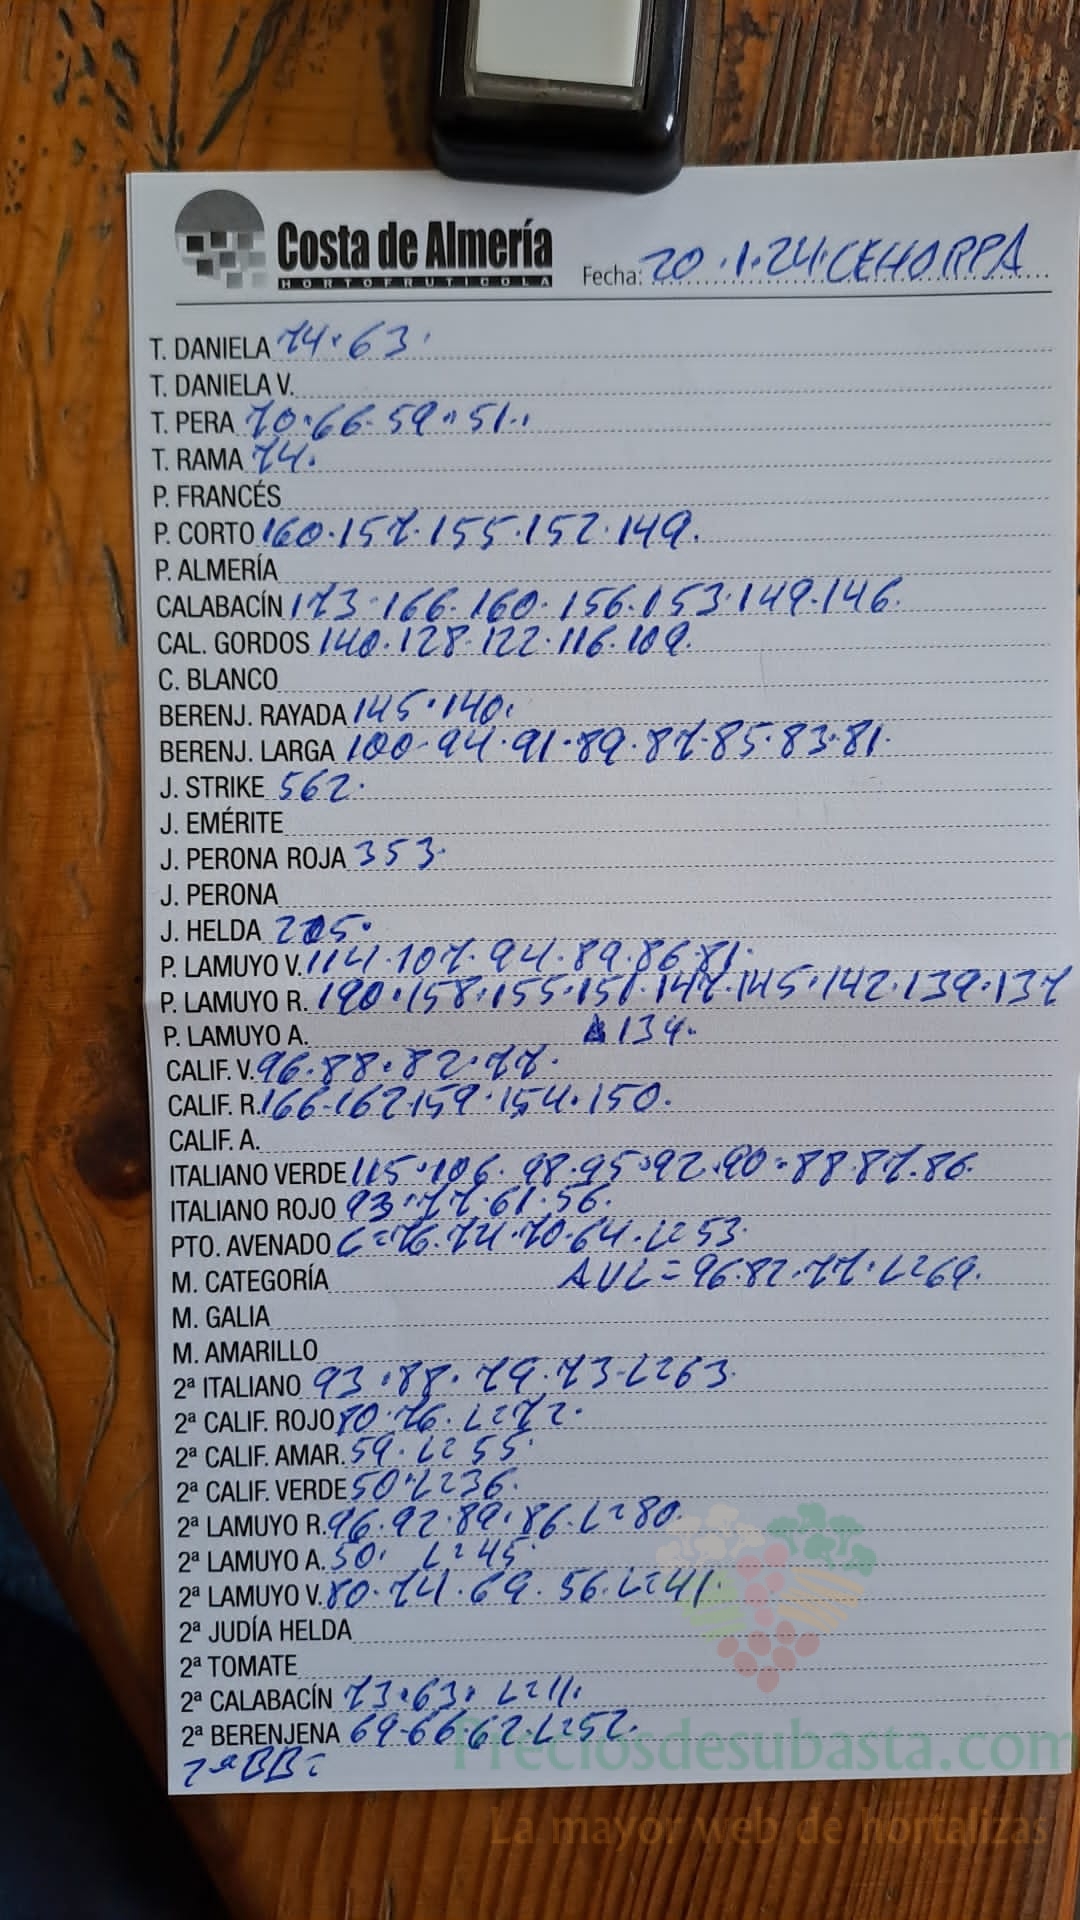 Costa de Almería
HORTOFRUTICOLA
Fecha: 20.1.24. CEHORPA
T. DANIELA 74.63.
T. DANIELA V.
T. PERA 70.66.59.51..
T. RAMA 74.
P. FRANCÉS
P. CORTO 160.157.155.152.149.
P. ALMERÍA
CALABACÍN 173.166.160.156.153.149.146.
CAL. GORDOS 140.128.122.116.109.
C. BLANCO
BERENJ. RAYADA 145.140.
BERENJ. LARGA 100.94.91.89.87.85.83.81.
J. STRIKE 562.
J. EMÉRITE
J. PERONA ROJA 353.
J. PERONA
J. HELDA
P. LAMUYO V. 114.107.94.89.86.81.
P. LAMUYO R. 190.158.155.151.147.145.142.139.137
P. LAMUYO A. 134.
CALIF. V. 96.88.82.77.
CALIF. R. 166.162.159.154.150.
CALIF. A.
ITALIANO VERDE 115.106.98.95.92.90.88.87.86.
ITALIANO ROJO 93.77.61.56.
PTO. AVENADO C=76.74.70.64.L=53.
M. CATEGORÍA AVL=96.82.77.L=69.
M. GALIA
M. AMARILLO
2ª ITALIANO 93.88.79.73.L=63.
2ª CALIF. ROJO 80.76.L=72.
2ª CALIF. AMAR. 59.L=55.
2ª CALIF. VERDE 50.L=36.
2ª LAMUYO R. 96.92.89.86.L=80.
2ª LAMUYO A. 50. L=45.
2ª LAMUYO V. 80.74.69.56.L=41.
2ª JUDÍA HELDA
2ª TOMATE
2ª CALABACÍN 73.63. L=11.
2ª BERENJENA 69.66.62.L=52.
2ªBB=
Preciosdesubasta.com
La mayor web de hortalizas